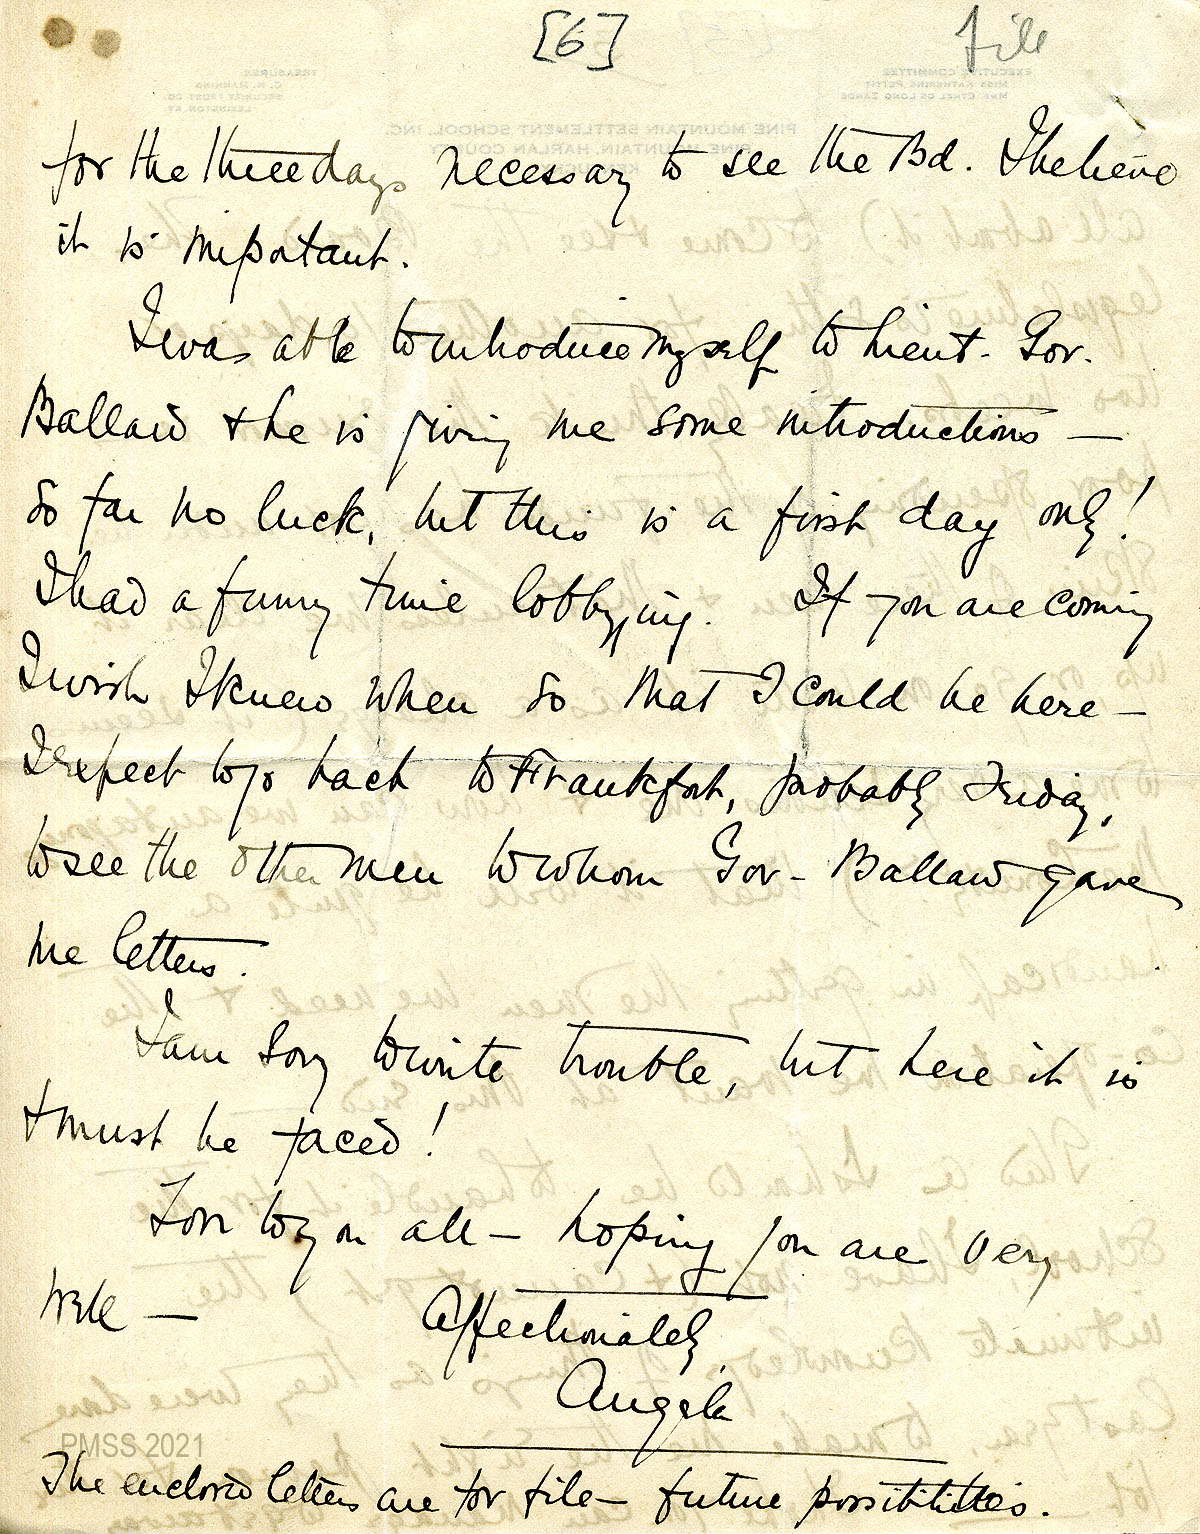 [6]
File
for the three days necessary to see the Bd. I believe
it is important.
I was able to introduce myself to Lieut. Gov.
Ballard & he is giving me some introductions —
So far no luck, but this is a first day only!
I had a funny time lobbying. If you are coming
I wish I knew when so that I could be here —
I expect to go back to Frankfort, probably Friday,
to see the other men to whom Gov. Ballard gave
me letters.
I am sorry to write trouble, but here it is
& must be faced!
Love to you all — hoping you are very
well —
Affectionately,
Angela
PMSS 2021
The enclosed letters are for file — future possibilities.